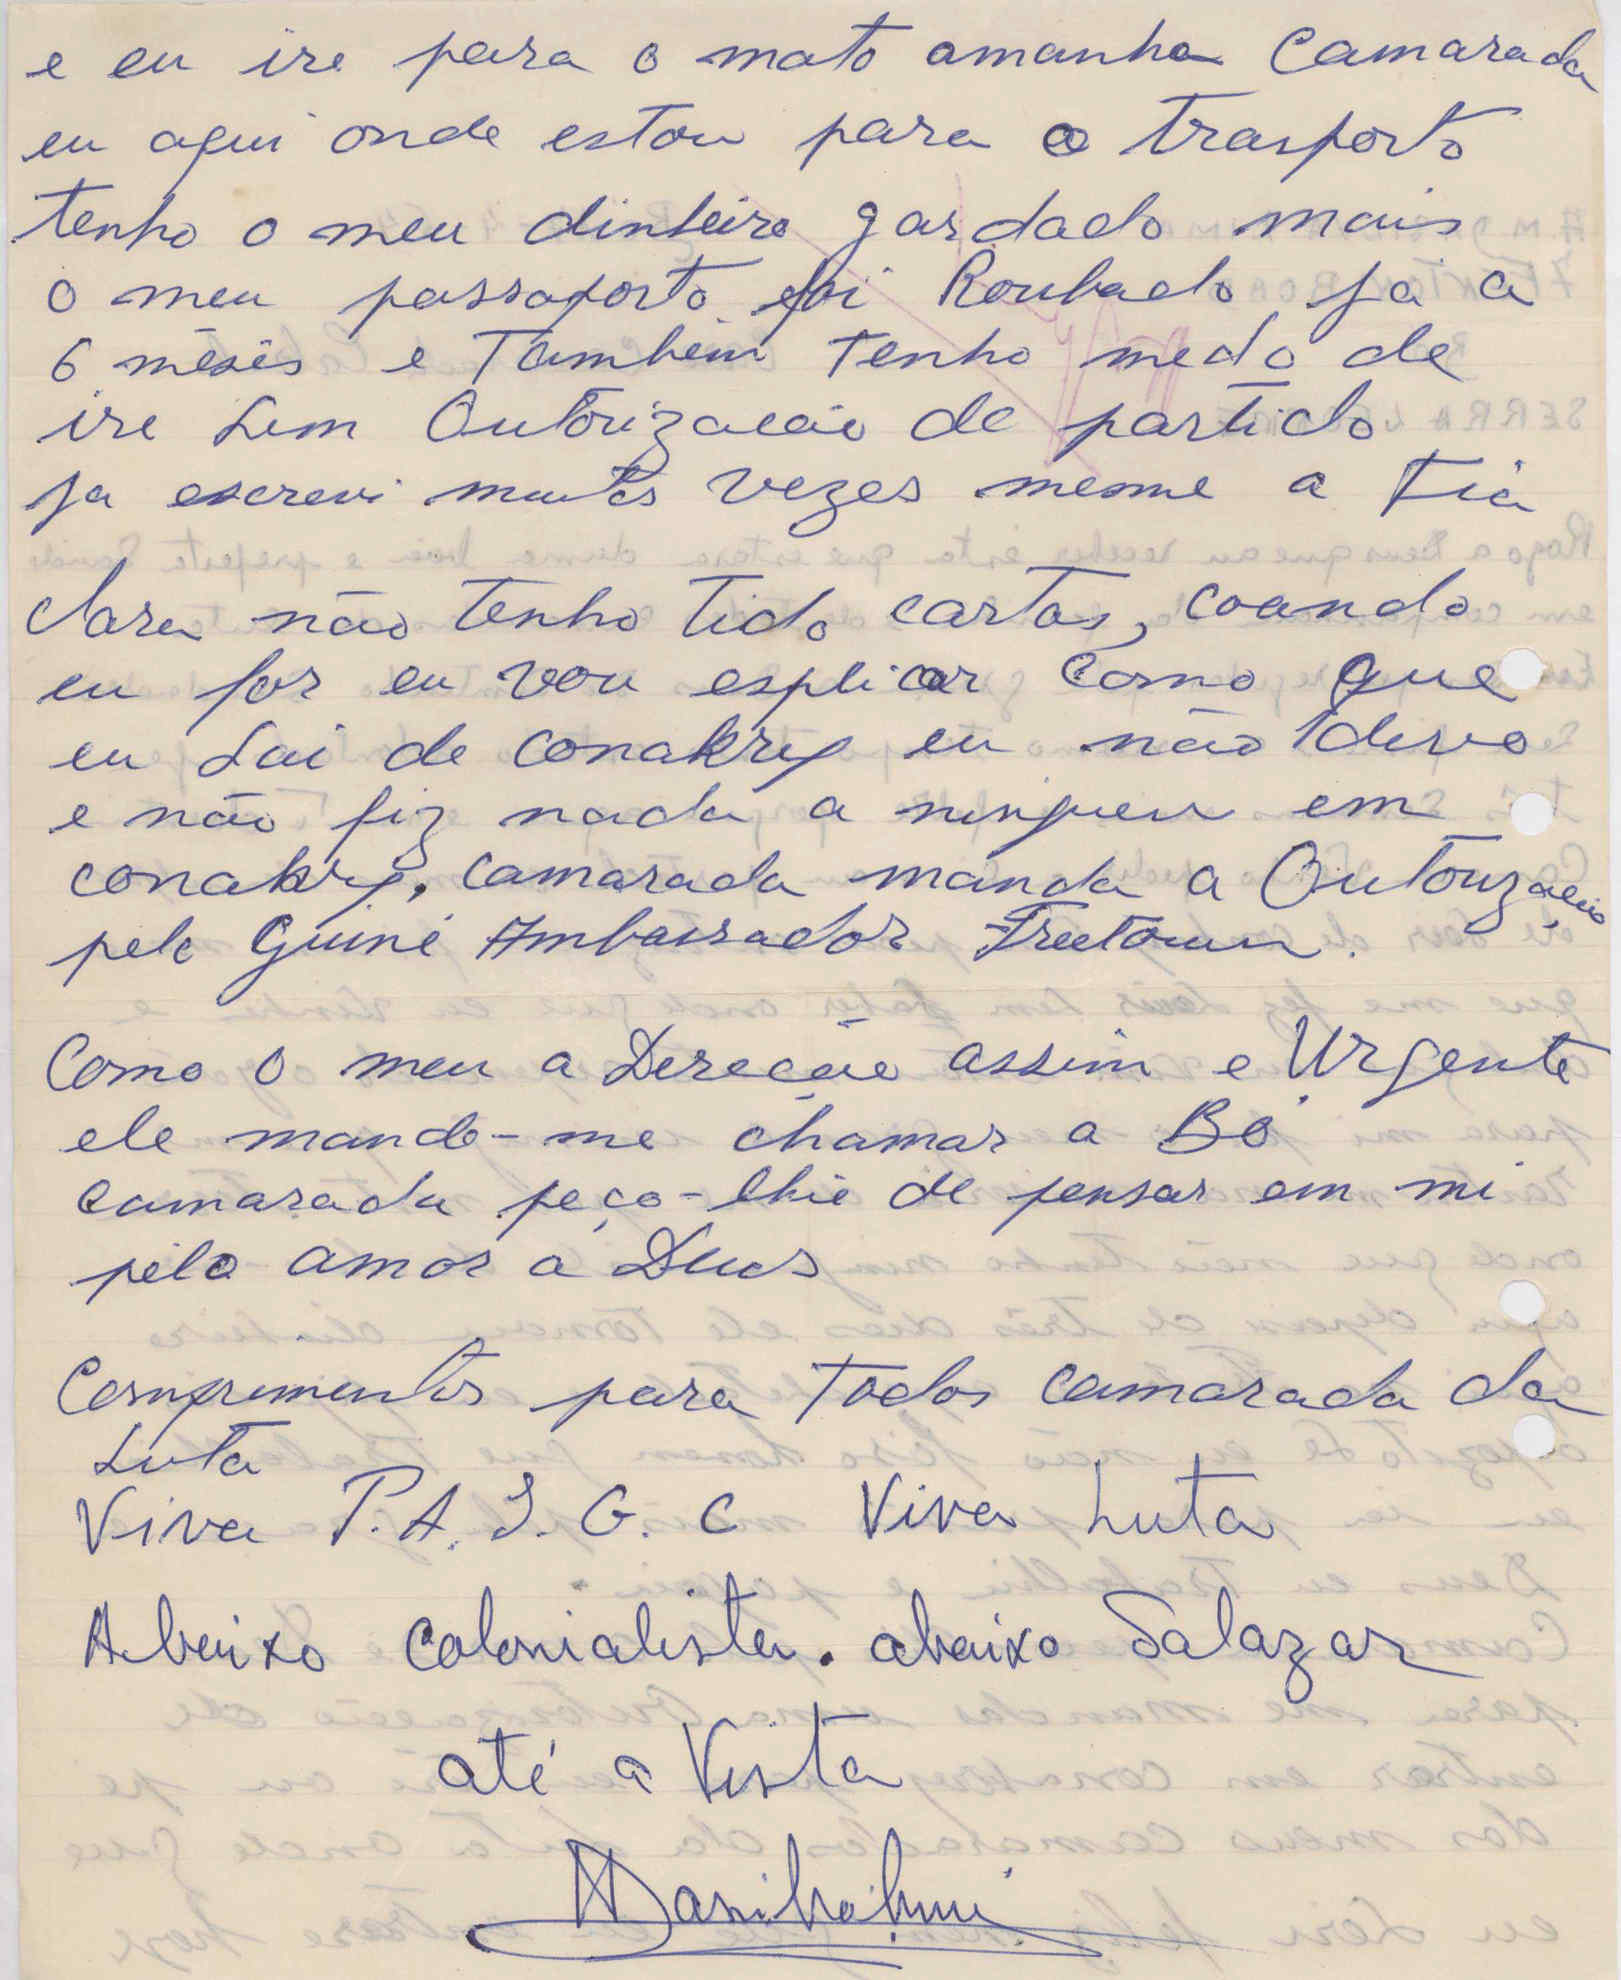 e eu ire para o mato amanha Camarada
eu aqui onde estou para o trasporto
tenho o meu dinheiro gardado mais
o meu passaporto foi Roubado ja a
6 mêsês e Tambêm tenho medo de
ire sem Outorizacão de partido
ja escrevi muntos vezes mesme a tia
clara não tenho tido cartas, coando
eu for eu vou esplicar como que
eu sai de conakry eu não devo
e não fiz nada a ninguem em
conakry. camarada manda a Outorizacão
pele Guiné Ambassador Freetown.
Como o meu a Derecão assim e Urgente
ele mando-me chamar a Bó
camarada peço-lhie de pensar em mi
pelo amor a Deus
Comprimentos para todos camarada da
Luta
Viva P.A.I.G.C Viva Luta
Abaixo Colonialista. abaixo Salazar
até a Vista